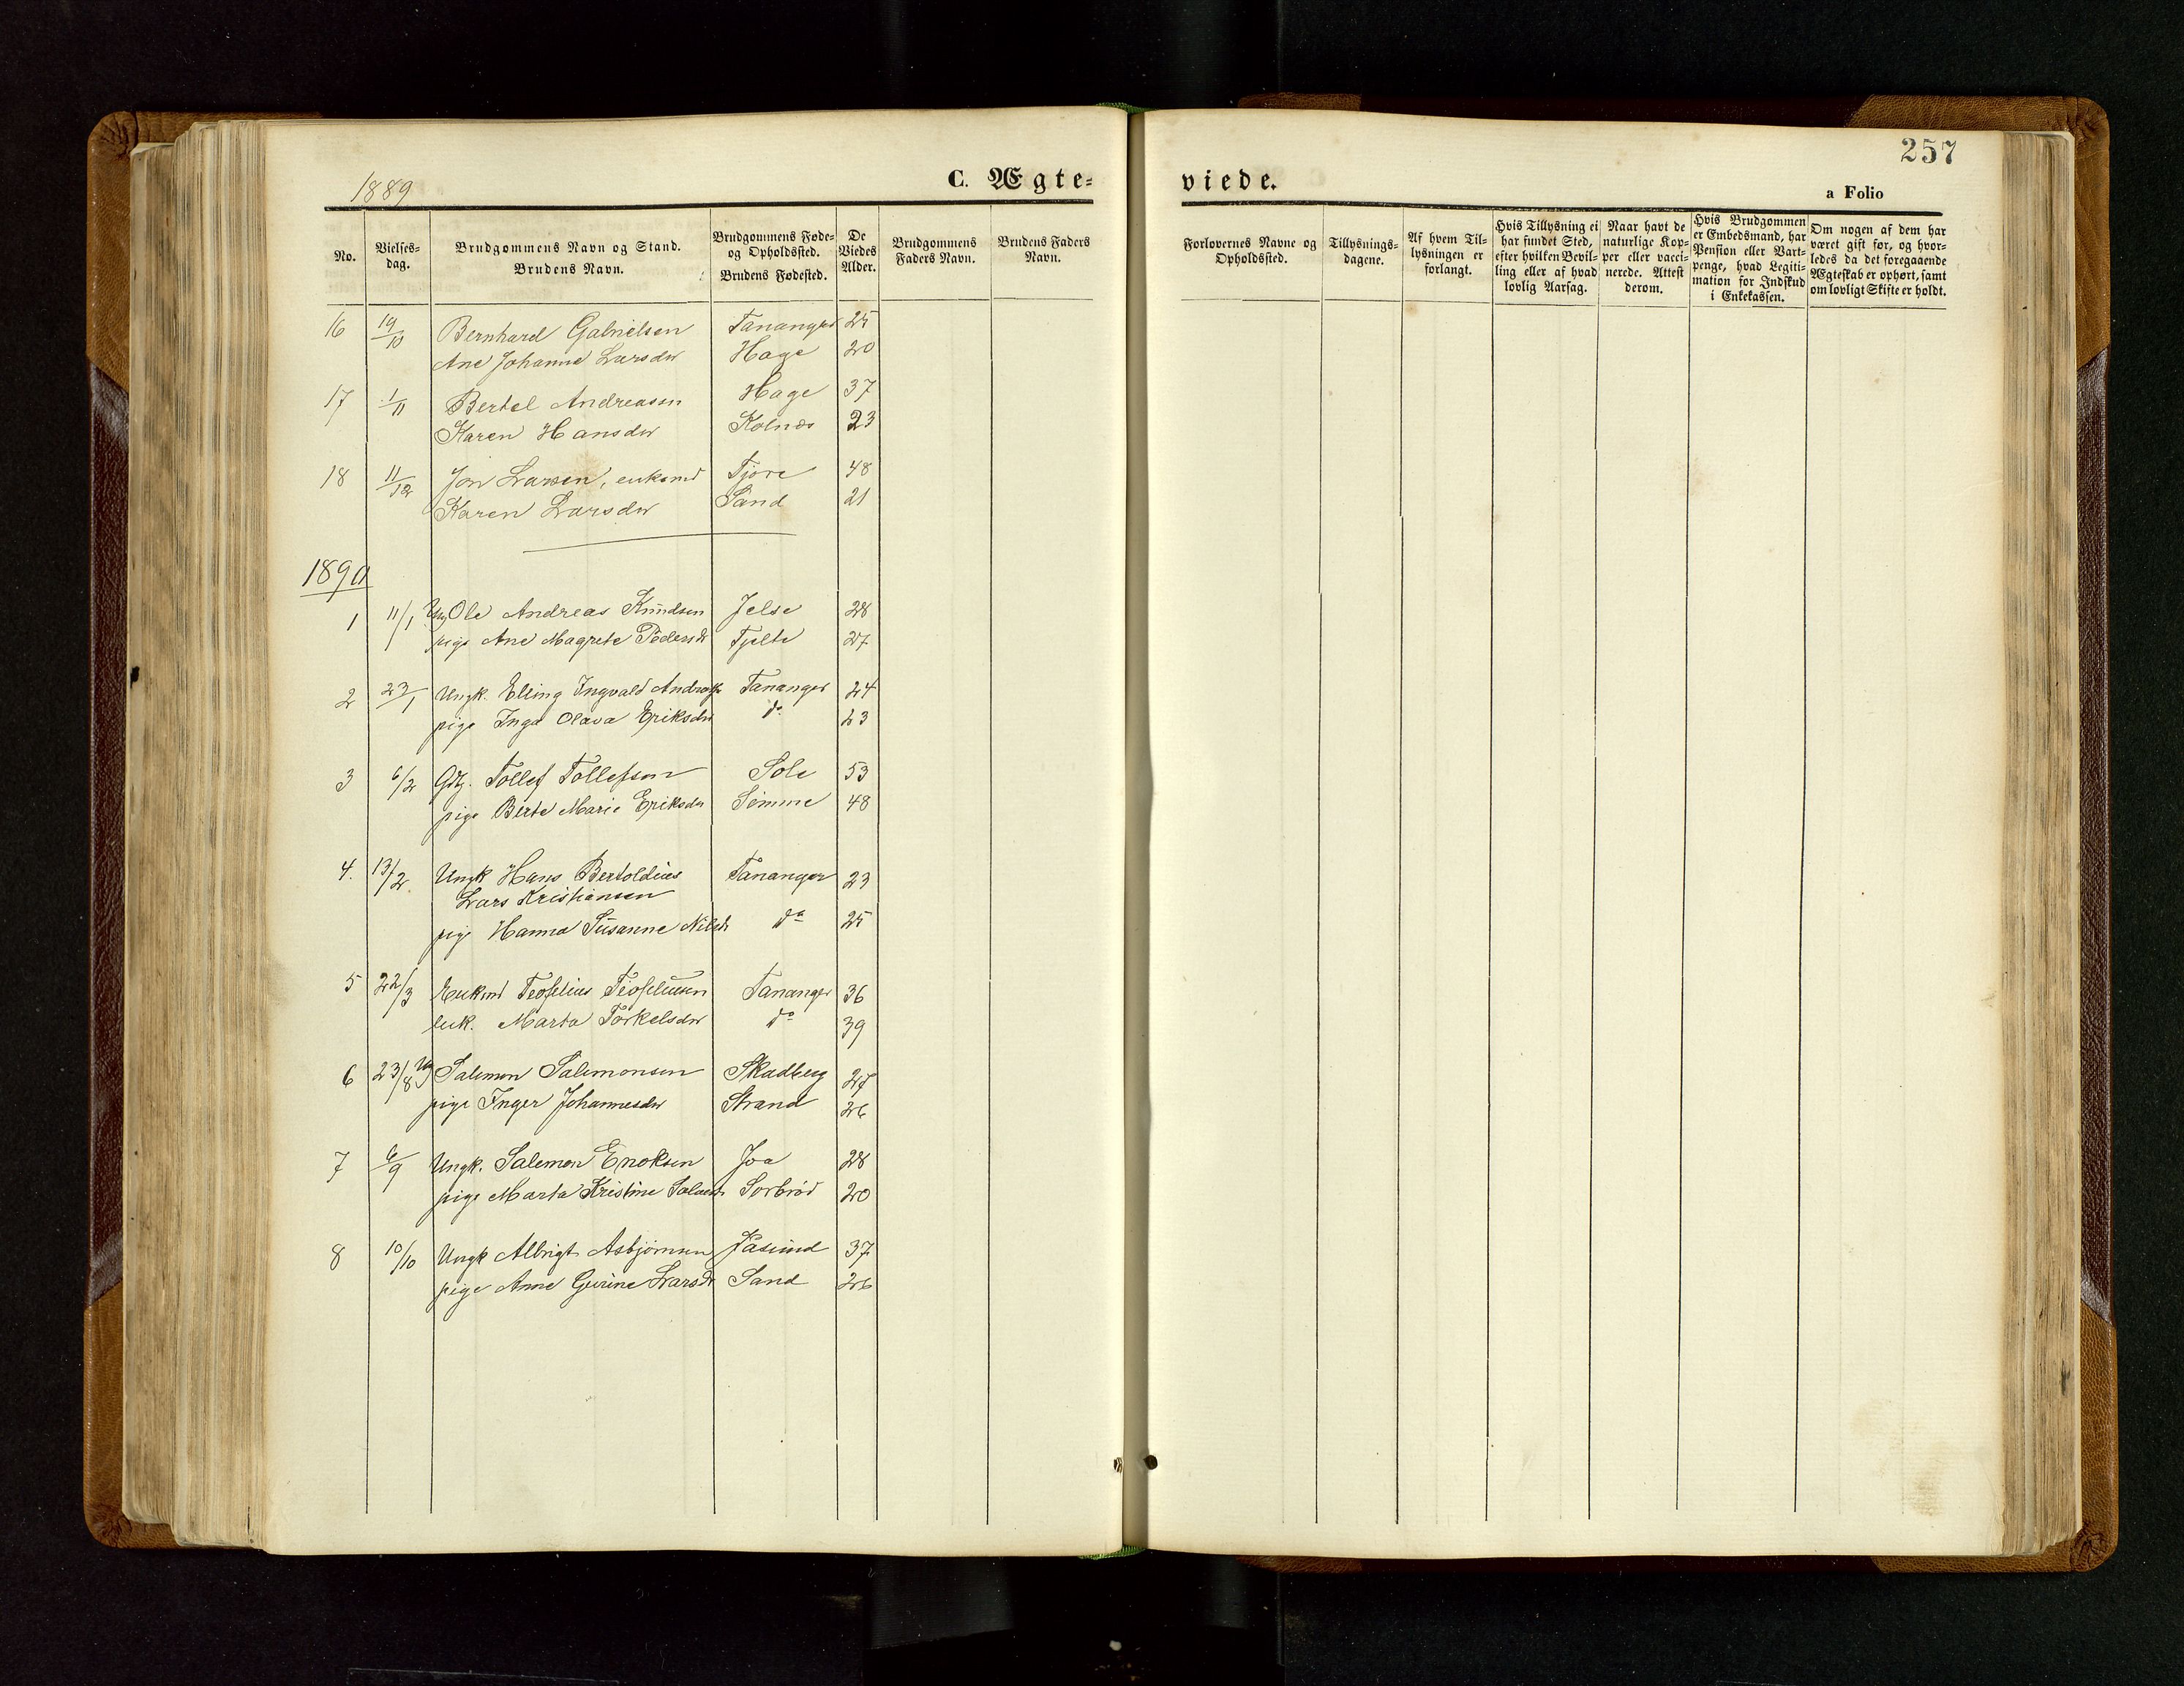 257
1889
C. Ægte-
viede.
a Folio
No.
Vielses-
dag.
Brudgommens Navn og Stand.
Brudens Navn.
Brudgommens Føde-
og Opholdssted.
Brudens Fødested.
De
Viedes
Alder.
Brudgommens
Faders Navn.
Brudens Faders
Navn.
Forlovernes Navne og
Opholdssted.
Tillysnings-
dagene.
Af hvem Til-
lysningen er
forlangt.
Hvis Tillysning ei
har fundet Sted,
efter hvilken Bevil-
ling eller af hvad
lovlig Aarsag.
Naar havt de
naturlige Kop-
per eller vacci-
nerede. Attest
derom.
Hvis Brudgommen
er Embedsmand, har
Pension eller Vart-
penge, hvad Legiti-
mation for Indskud
i Enkekassen.
Om nogen af dem har
været gift før, og hvor-
ledes da det foregaaende
Ægteskab er ophørt, samt
om lovligt Skifte er holdt.
16 19/10 Bernhard Gabrielsen Tananger 25
Ane Johanne Larsdtr Hage 20
17 1/11 Bertel Andreasen Hage 37
Karen Hansdtr Kolnæs 23
18 11/12 Jon Larsen, enkemd Tjøre 48
Karen Larsdtr Sand 21
1890
1 11/1 Ung Ole Andreas Knudsen Jelse 28
pige Ane Magrete Pedersdr Tjelte 27
2 23/1 Ungk. Elling Ingvald Tananger 24
pige Inga Olava Eriksdtr do 23
3 6/2 Tollef Tollefsen Sole 53
pige Berte Marie Eriksdtr Sømme 48
4. 13/2 Ungk Hans Bertoldius Tananger 23
Lars Kristiansen
pige Hanna Susanne Nilsdr do 25
5 22/3 Enkemd Teofelius Teofeliusen Tananger 36
Enk. Marta Torkelsdtr do 39
6 23/8 Ung Salemon Salemonsen Skadberg 27
pige Inger Johannesdtr Strand 26
7 6/9 Ungk. Salemon Enoksen Joa 28
pige Marta Kristine Sørbrød 20
8 10/10 Ungk Albrigt Asbjørnsen Jåsund 37
pige Anne Gurine Larsdr Sand 26